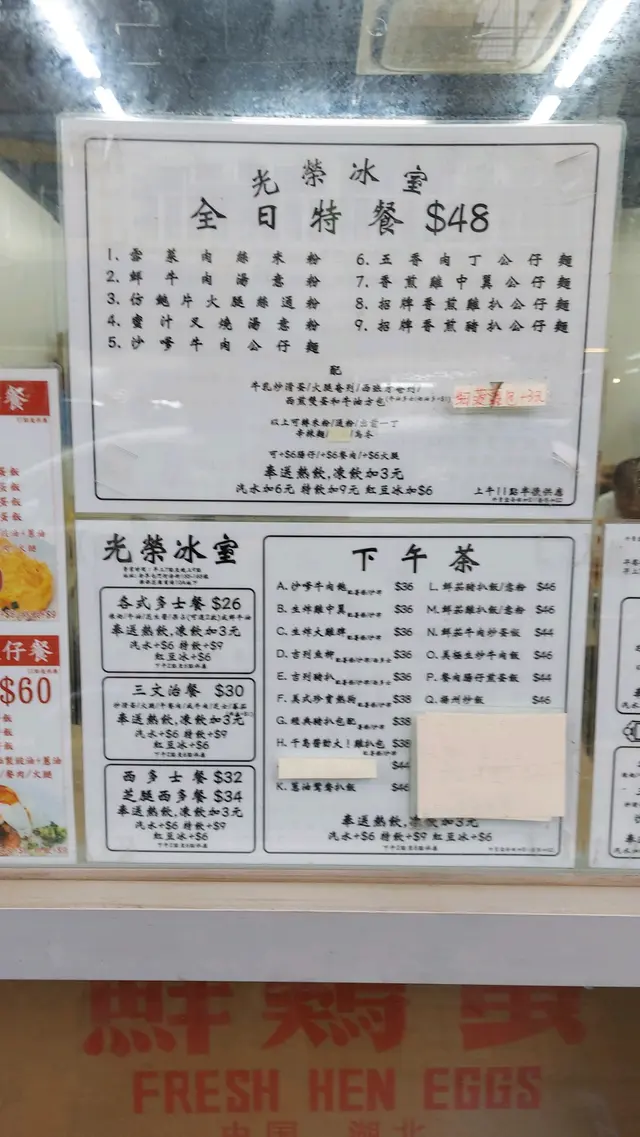 光榮冰室
全日特餐 $48
1. 雪菜肉絲米粉
2. 鮮牛肉湯意粉
3. 仿鮑片火腿絲通粉
4. 蜜汁叉燒湯意粉
5. 沙嗲牛肉公仔麵
6. 五香肉丁公仔麵
7. 香煎雞中翼公仔麵
8. 招牌香煎雞扒公仔麵
9. 招牌香煎豬扒公仔麵
配
牛乳炒滑蛋/火腿奄列/西班牙奄列/
西煎雙蛋和牛油方包
以上可轉米粉/通粉/出前一丁
辛辣麵/ /烏冬
可+$6腸仔/+$6餐肉/+$6火腿
奉送熱飲,凍飲加3元
汽水加6元 特飲加9元 紅豆冰加$6
上午11點半後供應
餐
蛋飯
蛋飯
蛋飯
仔餐
$60
光榮冰室
各式多士餐 $26
奉送熱飲,凍飲加3元
汽水+$6 特飲+$9
紅豆冰+$6
三文治餐 $30
奉送熱飲,凍飲加3元
汽水+$6 特飲+$9
紅豆冰+$6
西多士餐 $32
芝腿西多餐 $34
奉送熱飲,凍飲加3元
汽水+$6 特飲+$9
紅豆冰+$6
下午茶
A. 沙嗲牛肉麵 $36
B. 生炸雞中翼 $36
C. 生炸大雞髀 $36
D. 吉列魚柳 $36
E. 吉列豬扒 $36
F. 美式珍寶熱狗 $38
G. 經典豬扒包配 $38
H. 千島醬勁大!雞扒包 $38
$44
K. 蔥油鴛鴦扒飯 $46
L. 鮮茄豬扒飯/意粉 $46
M. 鮮茄雞扒飯/意粉 $46
N. 鮮茄牛肉炒蛋飯 $44
O. 美極生炒牛肉飯 $46
P. 餐肉腸仔煎蛋飯 $44
Q. 揚州炒飯 $46
奉送熱飲,凍飲加3元
汽水+$6 特飲+$9 紅豆冰+$6
鮮鷄蛋
FRESH HEN EGGS
中国 湖北